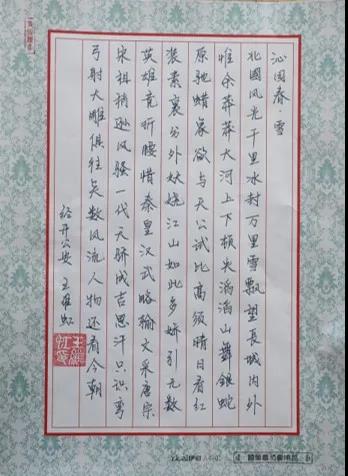 沁园春·雪
北國风光千里冰封万里雪飘望長城内外
惟余莽莽大河上下顿失滔滔山舞銀蛇
原驰蜡象欲与天公试比高须晴日看红
装素裹分外妖娆江山如此多娇引无数
英雄竞折腰惜秦皇汉武略输文采唐宗
宋祖稍逊风骚一代天骄成吉思汗只识弯
弓射大雕俱往矣数风流人物还看今朝
经开公安 王维虹